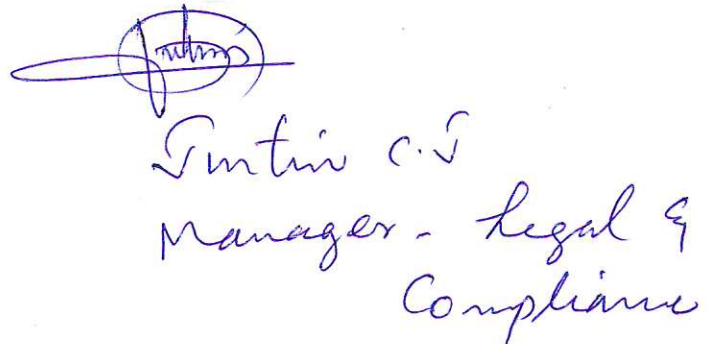 Justin C.J
Manager - Legal &
Compliance